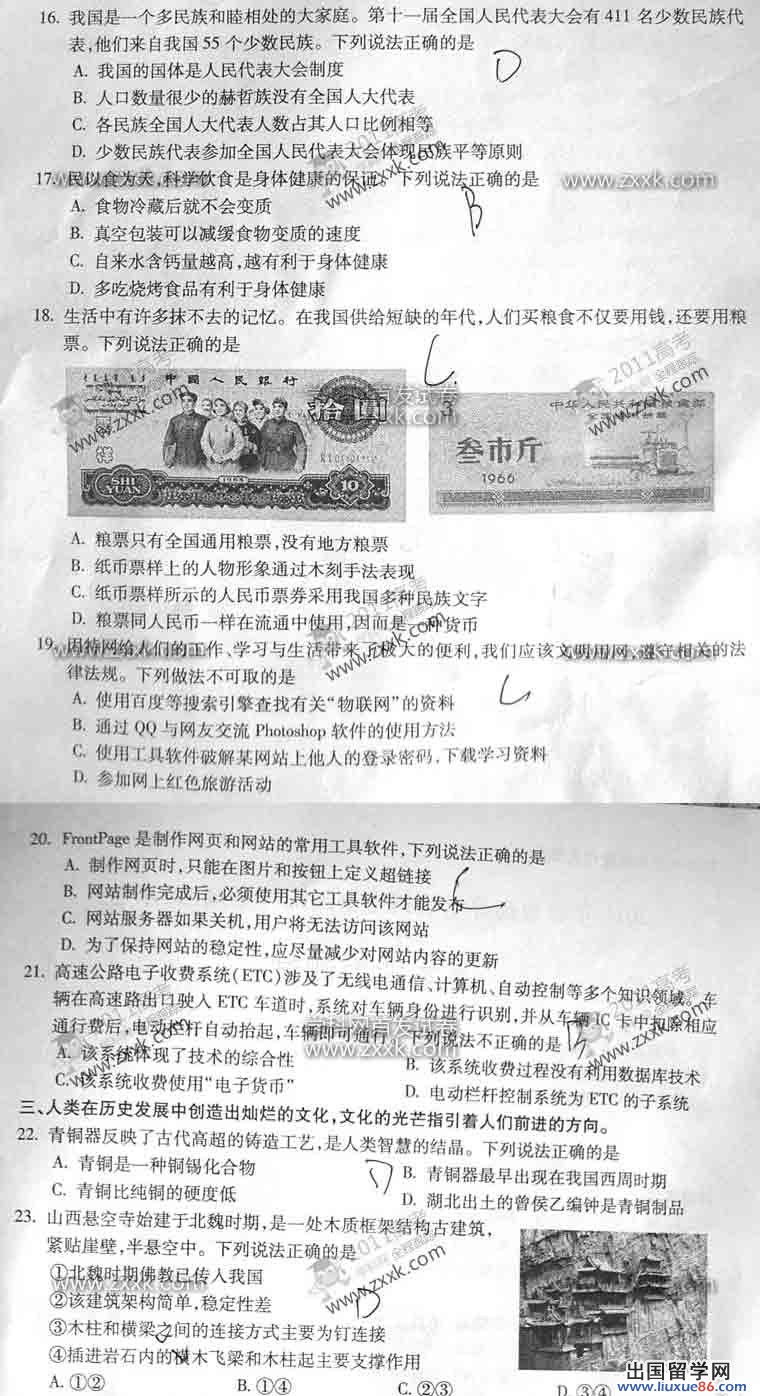 16. 我国是一个多民族和睦相处的大家庭。第十一届全国人民代表大会有 411 名少数民族代
表,他们来自我国 55 个少数民族。下列说法正确的是
D
A. 我国的国体是人民代表大会制度
B. 人口数量很少的赫哲族没有全国人大代表
C. 各民族全国人大代表人数占其人口比例相等
D. 少数民族代表参加全国人民代表大会体现民族平等原则
17. 民以食为天,科学饮食是身体健康的保证。下列说法正确的是
www.zxxk.com
B
A. 食物冷藏后就不会变质
B. 真空包装可以减缓食物变质的速度
C. 自来水含钙量越高,越有利于身体健康
D. 多吃烧烤食品有利于身体健康
18. 生活中有许多抹不去的记忆。在我国供给短缺的年代,人们买粮食不仅要用钱,还要用粮
票。下列说法正确的是
C
2011高考
www.zxxk.com
中国人民银行
拾圆
SHI
YUAN
1965
10
叁市斤
1966
A. 粮票只有全国通用粮票,没有地方粮票
B. 纸币票样上的人物形象通过木刻手法表现
C. 纸币票样所示的人民币票券采用我国多种民族文字
D. 粮票同人民币一样在流通中使用,因而是一种货币
19. 因特网给人们的工作、学习与生活带来了极大的便利,我们应该文明用网,遵守相关的法
律法规。下列做法不可取的是
C
A. 使用百度等搜索引擎查找有关“物联网”的资料
B. 通过 QQ 与网友交流 Photoshop 软件的使用方法
C. 使用工具软件破解某网站上他人的登录密码,下载学习资料
D. 参加网上红色旅游活动
20. FrontPage 是制作网页和网站的常用工具软件,下列说法正确的是
C
A. 制作网页时,只能在图片和按钮上定义超链接
B. 网站制作完成后,必须使用其它工具软件才能发布
C. 网站服务器如果关机,用户将无法访问该网站
D. 为了保持网站的稳定性,应尽量减少对网站内容的更新
21. 高速公路电子收费系统(ETC)涉及了无线电通信、计算机、自动控制等多个知识领域。车
辆在高速路出口驶入 ETC 车道时,系统对车辆身份进行识别,并从车辆 IC 卡中扣除相应
通行费后,电动栏杆自动抬起,车辆即可通行。下列说法不正确的是
B
A. 该系统体现了技术的综合性
B. 该系统收费过程没有利用数据库技术
C. 该系统收费使用“电子货币”
D. 电动栏杆控制系统为 ETC 的子系统
三、人类在历史发展中创造出灿烂的文化,文化的光芒指引着人们前进的方向。
22. 青铜器反映了古代高超的铸造工艺,是人类智慧的结晶。下列说法正确的是
D
A. 青铜是一种铜锡化合物
B. 青铜器最早出现在我国西周时期
C. 青铜比纯铜的硬度低
D. 湖北出土的曾侯乙编钟是青铜制品
23. 山西悬空寺始建于北魏时期,是一处木质框架结构古建筑,
紧贴崖壁,半悬空中。下列说法正确的是
①北魏时期佛教已传入我国
②该建筑架构简单,稳定性差
B
③木柱和横梁之间的连接方式主要为钉连接
④插进岩石内的横木飞梁和木柱起主要支撑作用
A. ①②
B. ①④
C. ②③
D. ③④
出国留学网
www.liuxue86.com